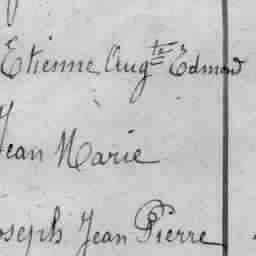 Etienne Aug^te Edmond
Jean Marie
Joseph Jean Pierre